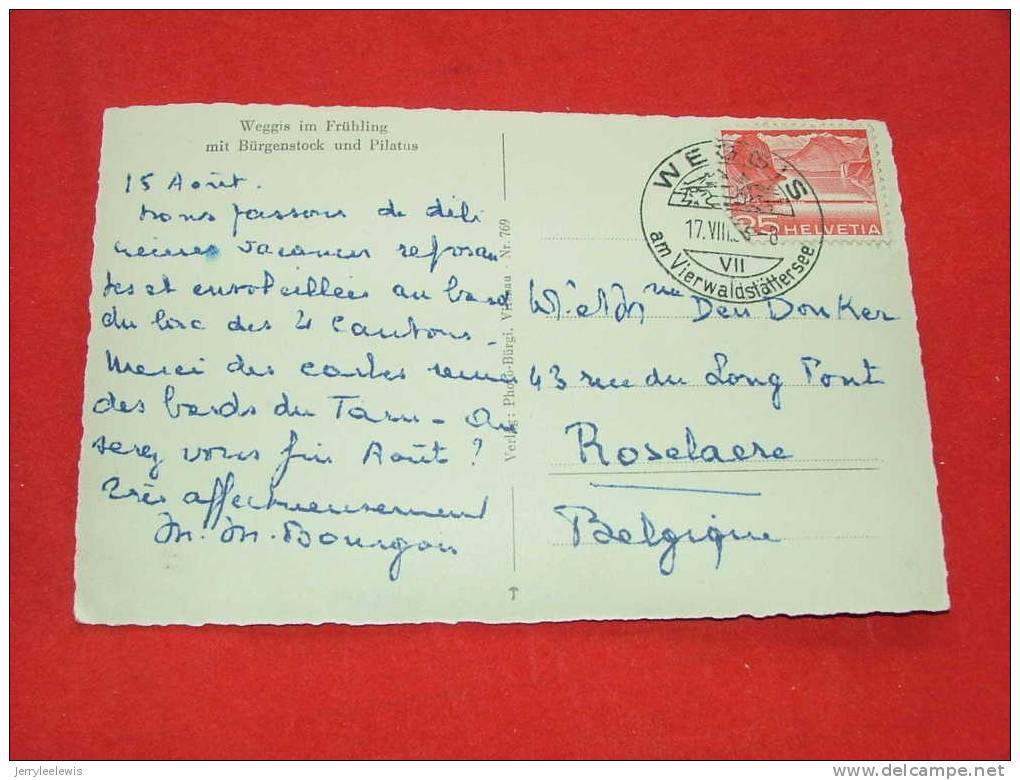 Weggis im Frühling
mit Bürgenstock und Pilatus
15 Août.
Nous passons de déli
cieuses vacances reposan
tes et ensoleillées au bord
du lac des 4 Cantons.
Merci des cartes
des bords du Tarn - Où
serez vous fin Août ?
très affectueusement
M. M. Bourgois
Verlag: Photo-Bürgi, Vitznau - Nr. 769
WEGGIS
17.VIII.
VII
am Vierwaldstättersee
25 HELVETIA
Den Donker
43 rue du Long Pont
Roselaere
Belgique
jerryleelewis
delcampe.net